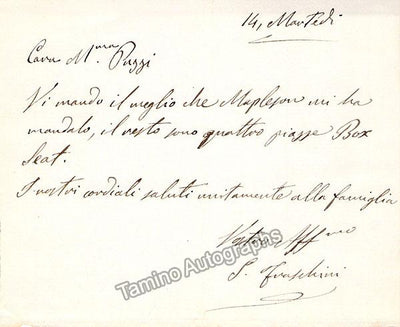 14, Martedi
Cara M.ma Puzzi
Vi mando il meglio che Mapleson mi ha
mandato, il resto sono quattro piazze Box
Seat.
I nostri cordiali saluti unitamente alla famiglia
Vostro Aff.mo
Fraschini
Tamino Autographs